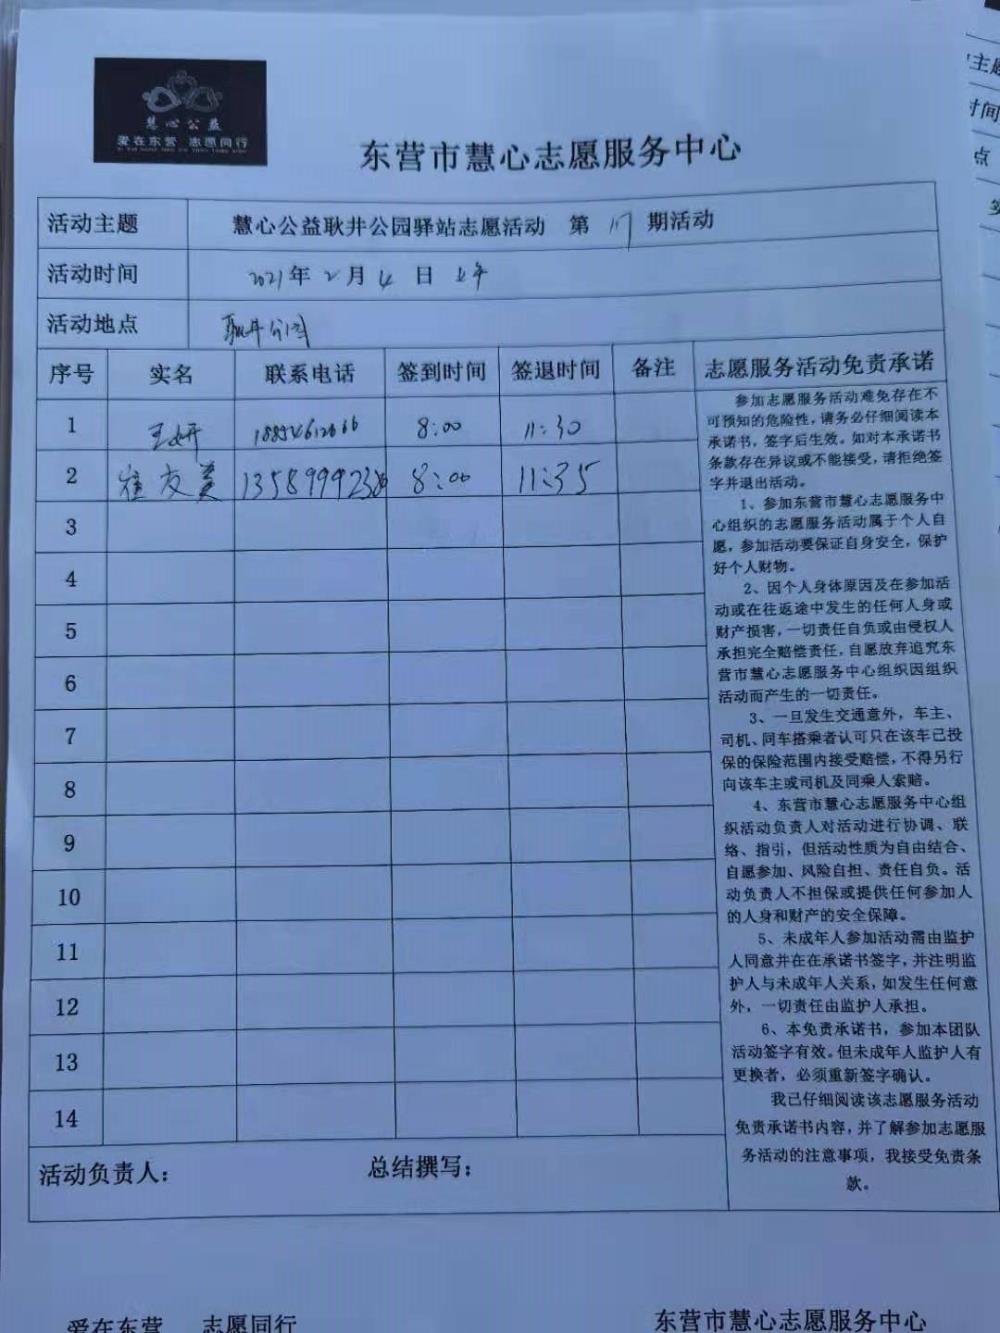 慧心公益
爱在东营 志愿同行
东营市慧心志愿服务中心
活动主题 慧心公益耿井公园驿站志愿活动 第 117 期活动
活动时间 2021年2月4日 上午
活动地点 耿井公园
序号 实名 联系电话 签到时间 签退时间 备注 志愿服务活动免责承诺
1 王妍 8:00 11:30
2 崔友美 13589992386 8:00 11:35
3
4
5
6
7
8
9
10
11
12
13
14
参加志愿服务活动难免存在不
可预知的危险性，请务必仔细阅读本
承诺书，签字后生效。如对本承诺书
条款存在异议或不能接受，请拒绝签
字并退出活动。
1、参加东营市慧心志愿服务中
心组织的志愿服务活动属于个人自
愿，参加活动要保证自身安全，保护
好个人财物。
2、因个人身体原因及在参加活
动或在往返途中发生的任何人身或
财产损害，一切责任自负或由侵权人
承担完全赔偿责任，自愿放弃追究东
营市慧心志愿服务中心组织因组织
活动而产生的一切责任。
3、一旦发生交通意外，车主、
司机、同车搭乘者认可只在该车已投
保的保险范围内接受赔偿，不得另行
向该车主或司机及同乘人索赔。
4、东营市慧心志愿服务中心组
织活动负责人对活动进行协调、联
络、指引，但活动性质为自由结合、
自愿参加、风险自担、责任自负。活
动负责人不担保或提供任何参加人
的人身和财产的安全保障。
5、未成年人参加活动需由监护
人同意并在在承诺书签字，并注明监
护人与未成年人关系，如发生任何意
外，一切责任由监护人承担。
6、本免责承诺书，参加本团队
活动签字有效。但未成年人监护人有
更换者，必须重新签字确认。
我已仔细阅读该志愿服务活动
免责承诺书内容，并了解参加志愿服
务活动的注意事项，我接受免责条
款。
活动负责人： 总结撰写：
爱在东营 志愿同行 东营市慧心志愿服务中心
主题
时间
点